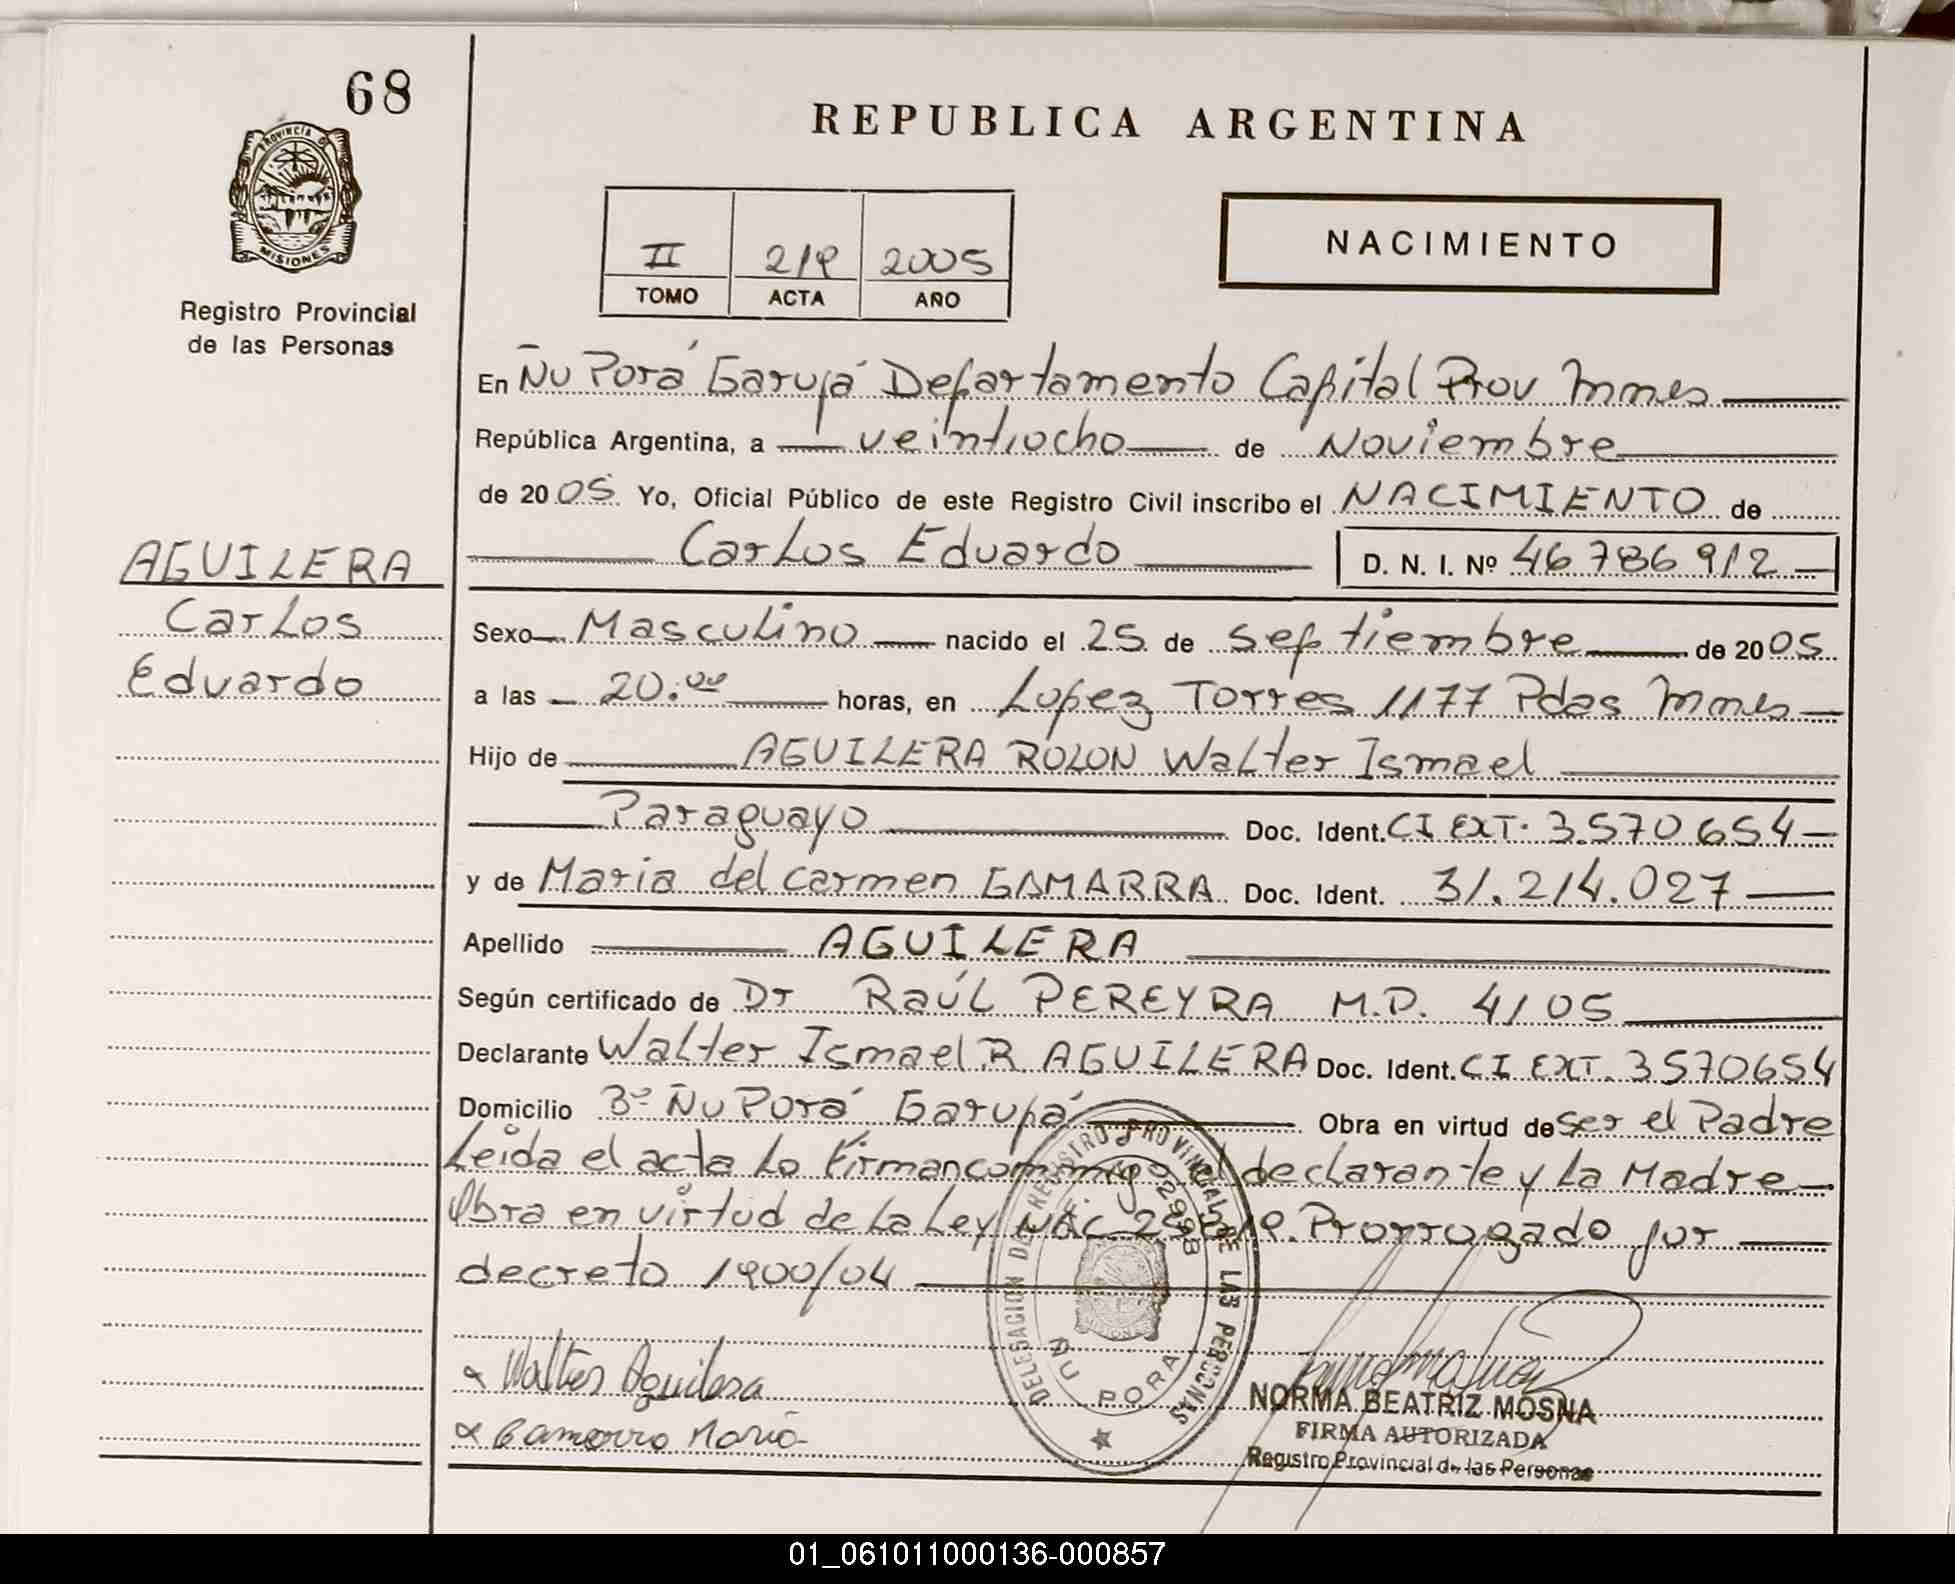 68
REPUBLICA ARGENTINA
PROVINCIA DE
MISIONES
Registro Provincial
de las Personas
NACIMIENTO
II 219 2005
TOMO ACTA AÑO
En Ñu Porá Garupá Departamento Capital Prov Mnes
República Argentina, a veintiocho de Noviembre
de 2005 Yo, Oficial Público de este Registro Civil inscribo el NACIMIENTO de
Carlos Eduardo D. N. I. Nº 46 786 912
AGUILERA
Carlos
Eduardo
Sexo Masculino nacido el 25 de Septiembre de 2005
a las 20:00 horas, en Lopez Torres 1177 Pdas Mnes
Hijo de AGUILERA ROLON Walter Ismael
Paraguayo Doc. Ident. CI EXT. 3.570.654
y de Maria del Carmen GAMARRA Doc. Ident. 31.214.027
Apellido AGUILERA
Según certificado de Dr RAÚL PEREYRA M.P. 4105
Declarante Walter Ismael R. AGUILERA Doc. Ident. CI EXT. 3570654
Domicilio Bº Ñu Porá Garupá Obra en virtud de ser el Padre
Leida el acta lo firman conmigo el declarante y la Madre
Obra en virtud de la Ley Prorrogado por
decreto 1900/04
DELEGACION DEL REGISTRO PROVINCIAL DE LAS PERSONAS
ÑU PORA
MISIONES
Walter Aguilera
Gamarra Maria
NORMA BEATRIZ MOSNA
FIRMA AUTORIZADA
Registro Provincial de las Personas
01_061011000136-000857